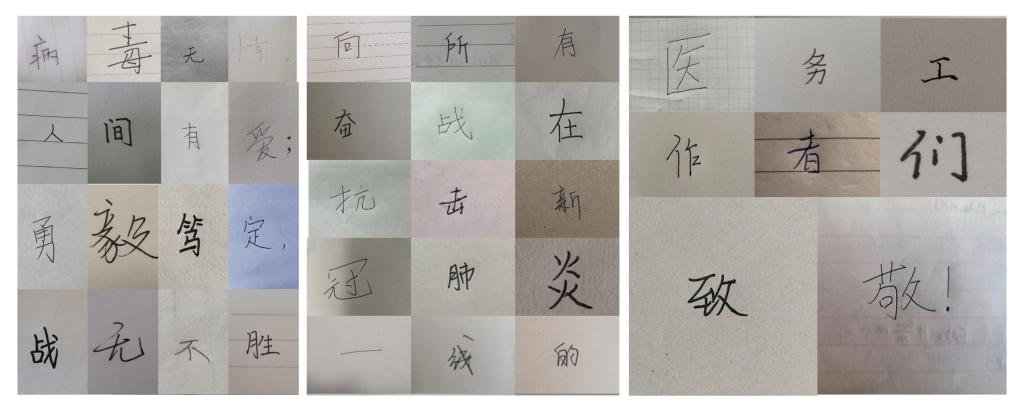 病毒无情,
人间有爱;
勇毅笃定,
战无不胜
向所有
奋战在
抗击新
冠肺炎
一线的
医务工
作者们
致敬!